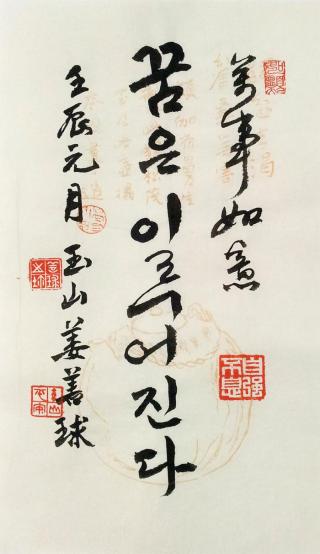 萬事如意
꿈은 이루어진다
壬辰元月 玉山 姜善球
自強不息